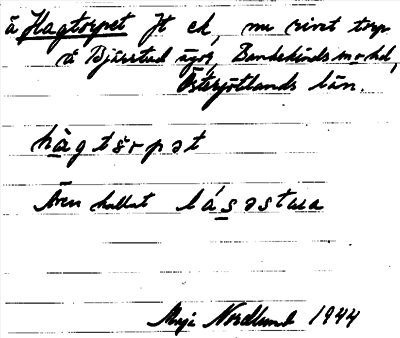 å Hagtorpet Jt ek, nu rivet torp
å Bjärstad ägor, Bankekinds sn o hd,
Östergötlands län.
hàgtɔrpət
Även kallat lásəstua
Maja Nordlund 1944